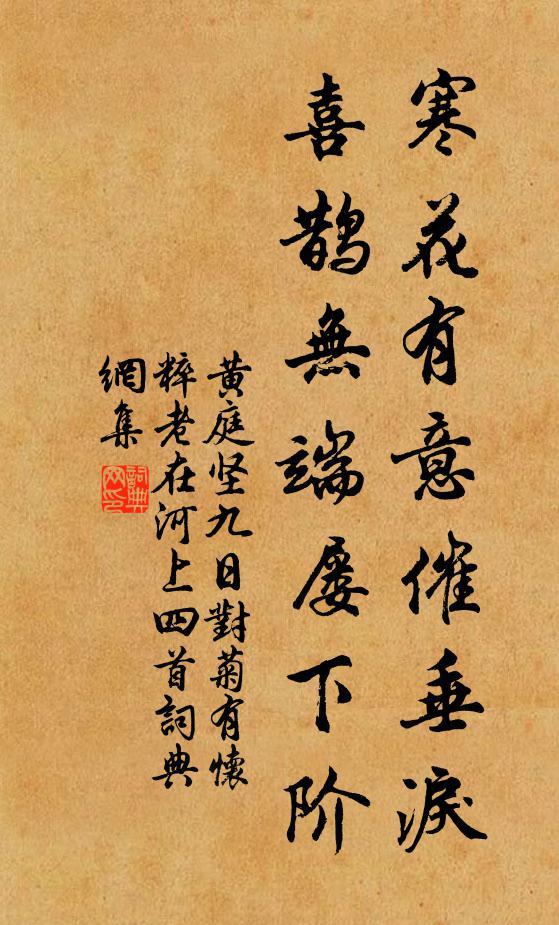 寒花有意催垂淚
喜鹊無端屡下阶
黄庭坚九日對菊有懷
粹老在河上四首詞典
網集
詞典
网印